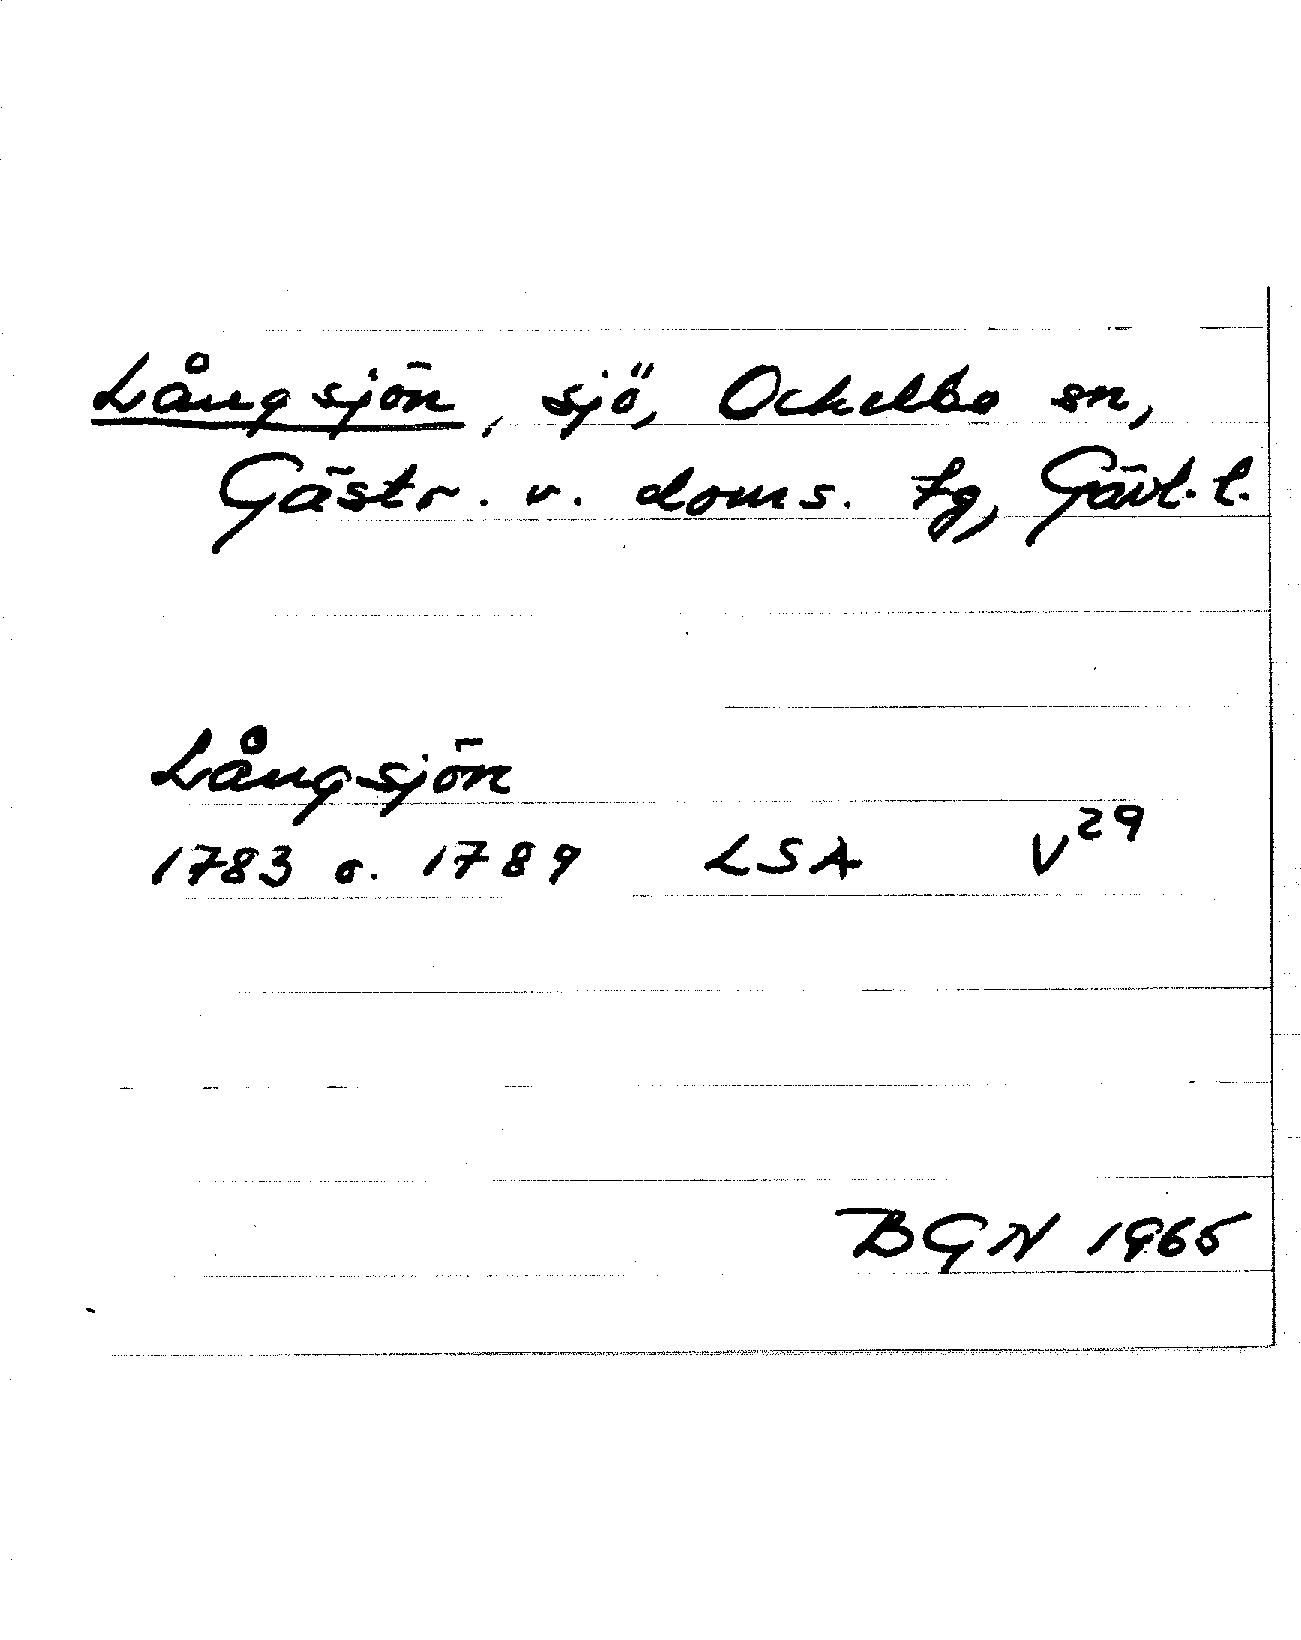 Långsjön, sjö, Ockelbo sn,
Gästr. v. doms. tg, Gävl. l.
Långsjön
1783 o. 1789 LSA V29
BGN 1965